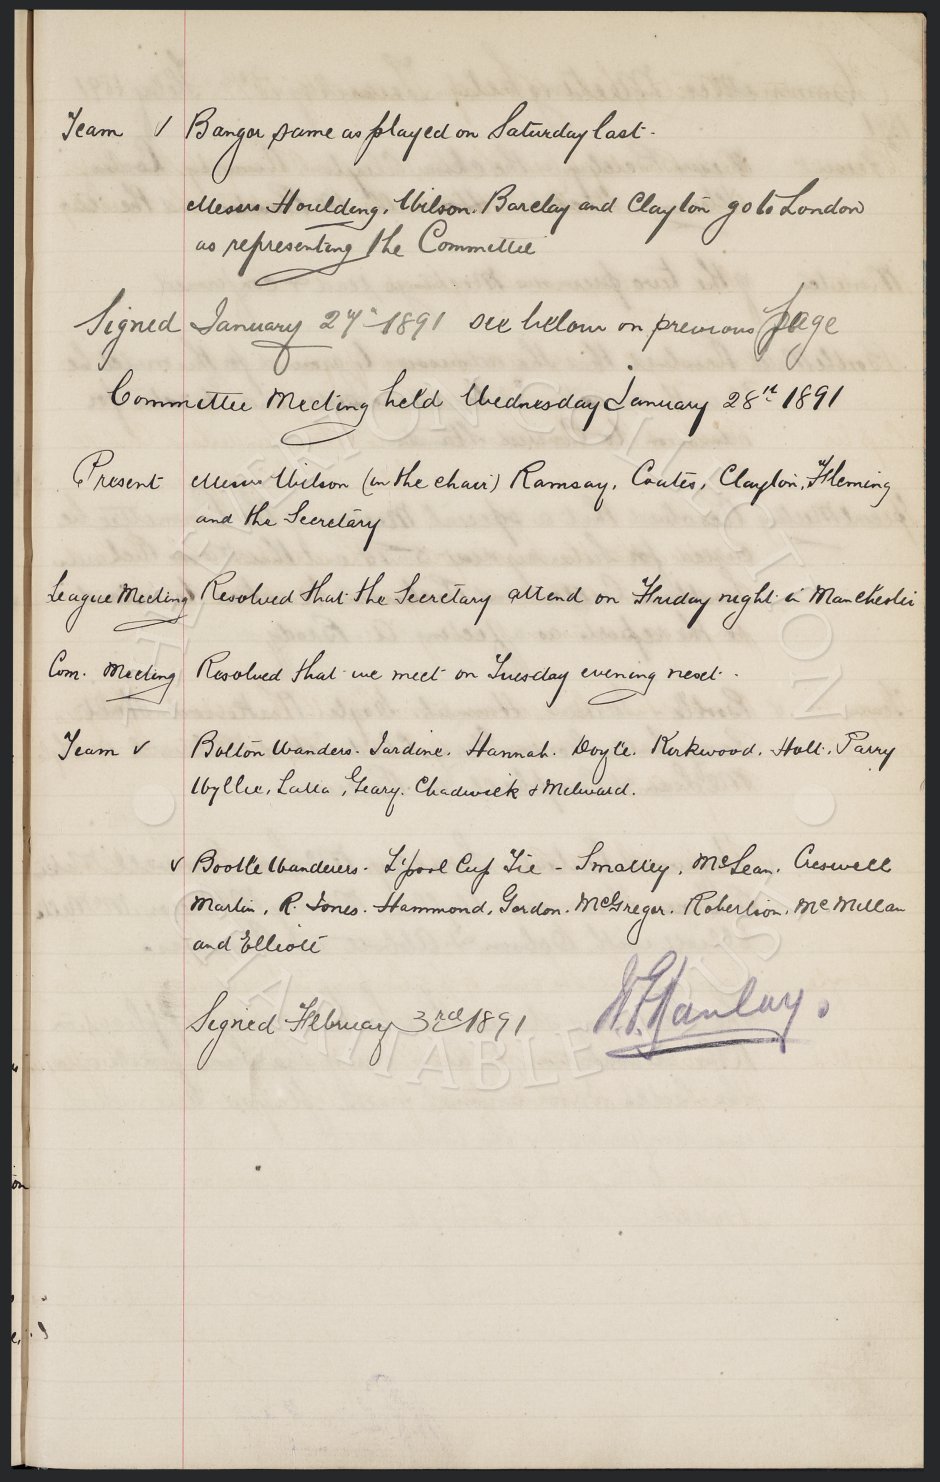 Team v Bangor same as played on Saturday last.
Messrs Houlding, Wilson. Barclay and Clayton go to London
as representing the Committee
Signed January 27th 1891 see below on previous page
Committee Meeting held Wednesday January 28th 1891
Present Messrs Wilson (in the chair) Ramsay, Coates, Clayton, Fleming
and the Secretary
League Meeting Resolved that the Secretary attend on Friday night in Manchester
Com. Meeting Resolved that we meet on Tuesday evening next.
Team v Bolton Wanders. Jardine. Hannah. Doyle. Kirkwood. Holt. Parry
Wyllie, Latta, Geary. Chadwick & Milward.
v Bootle Wanderers. L'pool Cup Tie - Smalley, McLean. Creswell
Martin, R. Jones. Hammond, Gordon. McGregor. Robertson, McMillan
and Elliott
Signed February 3rd 1891
HAFERTON COLLECTION
CHARITABLE